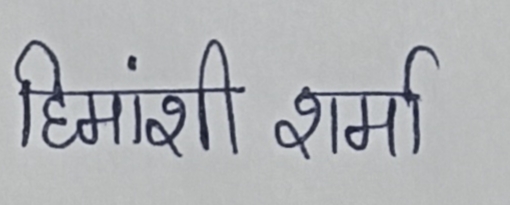 हिमांशी शर्मा